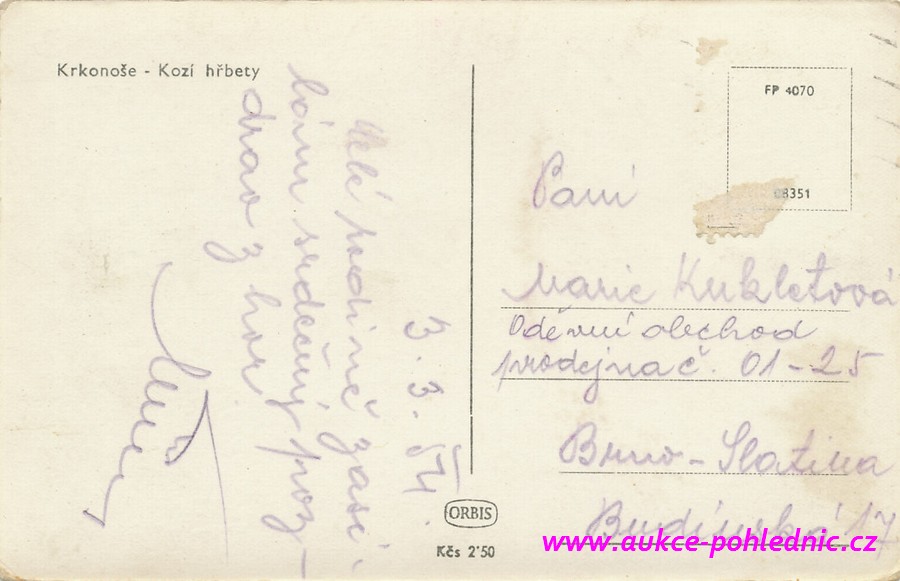 Krkonoše - Kozí hřbety
3. 3. 54.
Milé rodině zasí-
lám srdečný poz-
drav z hor.
FP 4070
08351
Paní
Marie Kukletová
Oděvní obchod
prodejna č. 01-25
Brno-Slatina
17
ORBIS
Kčs 2'50
www.aukce-pohlednic.cz